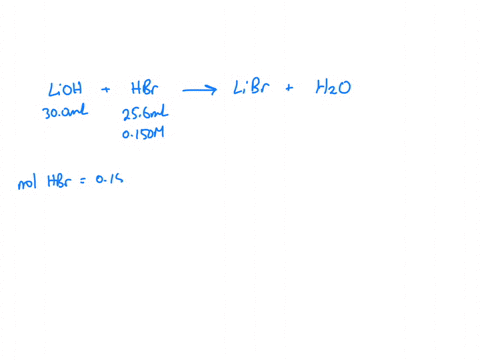 LiOH + HBr ⟶ LiBr + H2O
30.0ml 25.6ml
0.150M
mol HBr = 0.15